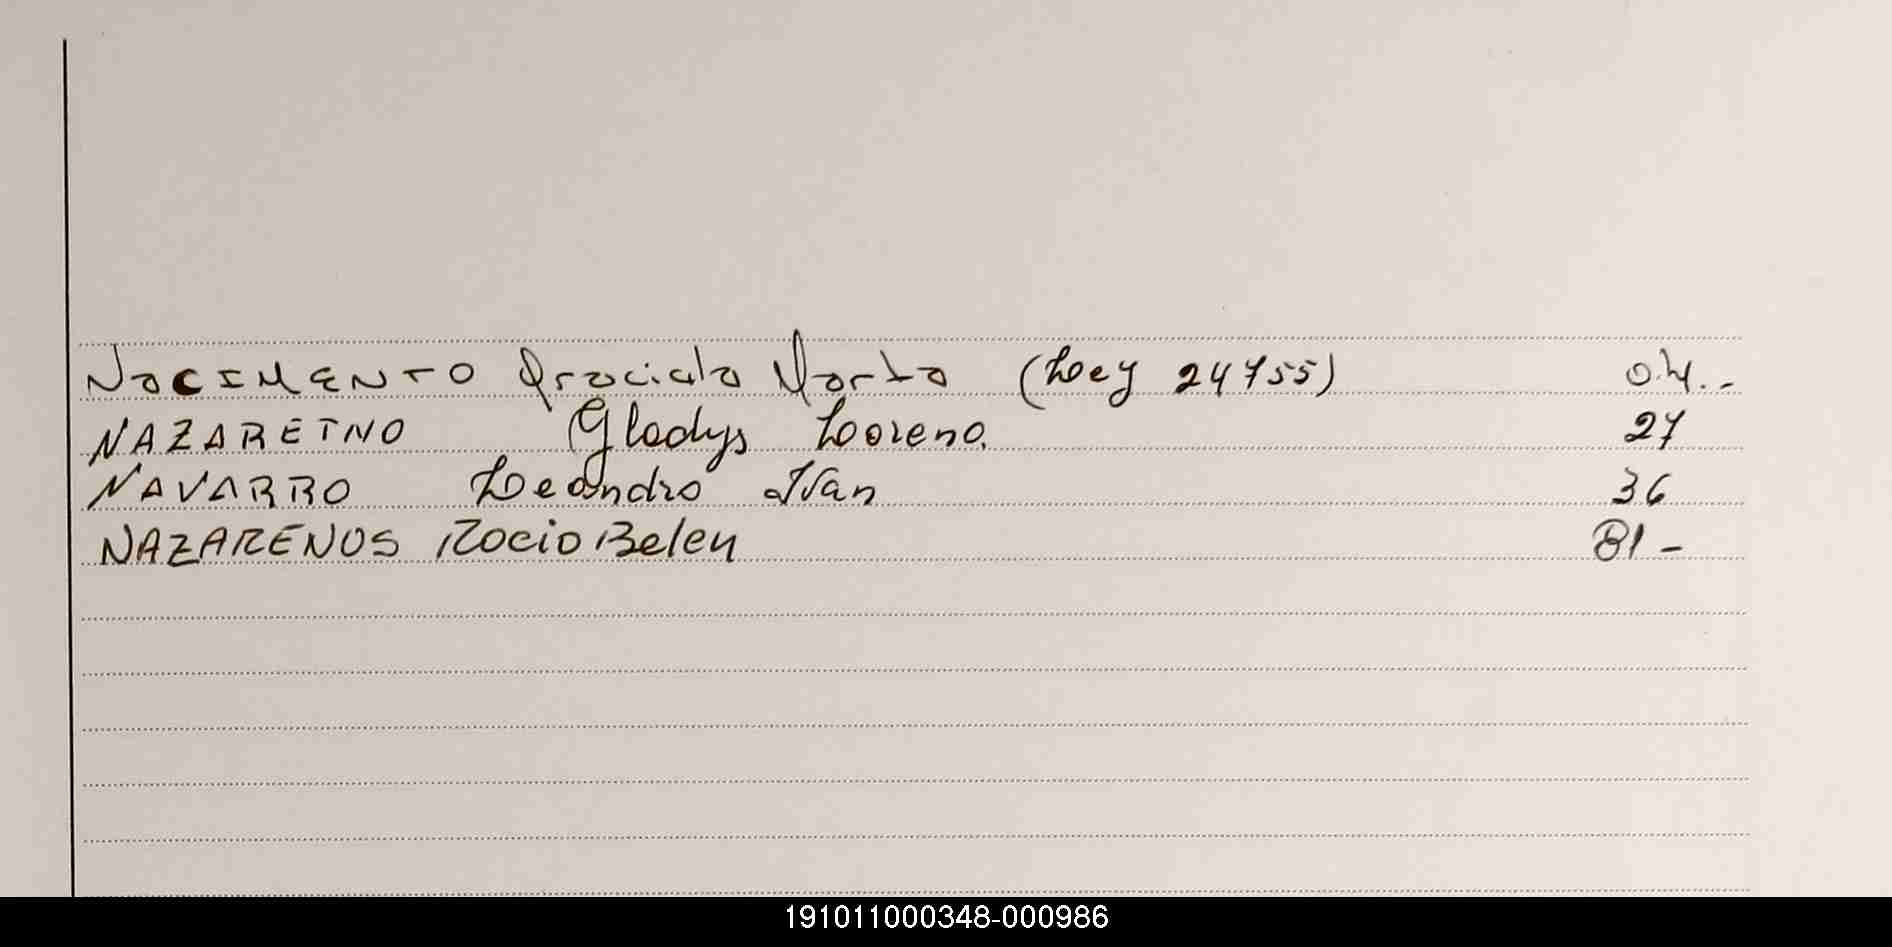 NACIMENTO Graciela Marta (Ley 24755)
NAZARETNO Gladys Lorena. 27
NAVARRO Leandro Ivan 36
NAZARENOS Rocio Belen 81-
191011000348-000986